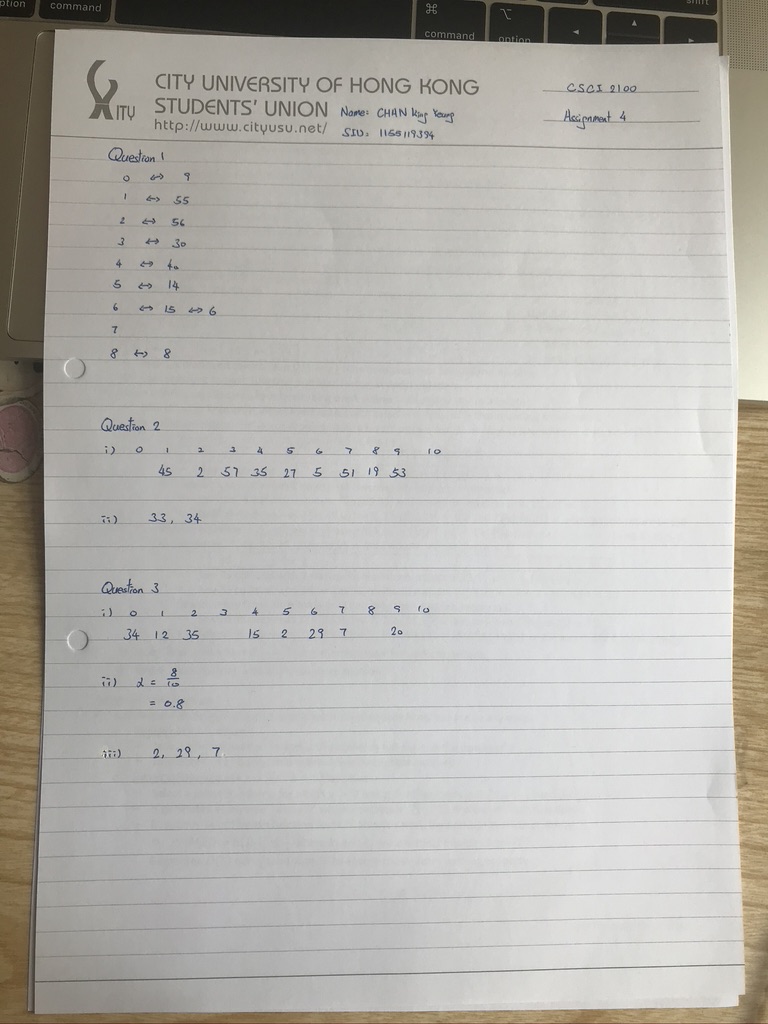 ption command ⌘ command ⌥ option ◄ ▲ ► shift
CITY
CITY UNIVERSITY OF HONG KONG
STUDENTS' UNION
http://www.cityusu.net/
Name: CHAN King Yeung
SID: 1155119394
CSCI 2100
Assignment 4
Question 1
0 ⇔ 9
1 ⇔ 55
2 ⇔ 56
3 ⇔ 30
4 ⇔ 40
5 ⇔ 14
6 ⇔ 15 ⇔ 6
7
8 ⇔ 8
Question 2
i) 0 1 2 3 4 5 6 7 8 9 10
45 2 57 35 27 5 51 19 53
ii) 33, 34
Question 3
i) 0 1 2 3 4 5 6 7 8 9 10
34 12 35 15 2 29 7 20
ii) α = 8/10
= 0.8
iii) 2, 29, 7